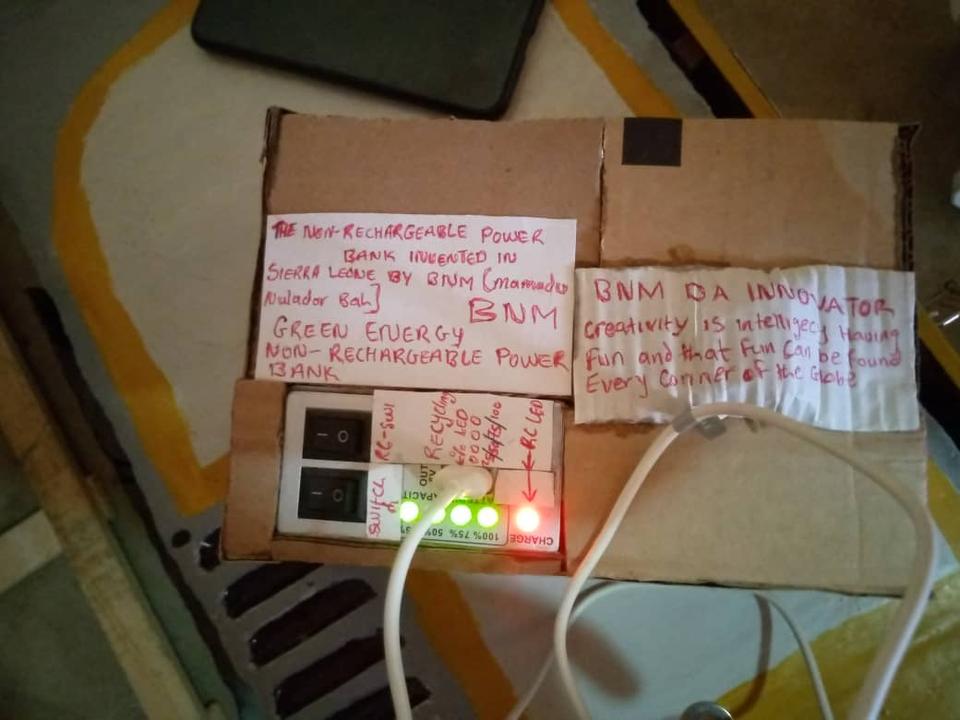 THE NON-RECHARGEABLE POWER
BANK INVENTED IN
SIERRA LEONE BY BNM [mamadu
Nulador Bah]
BNM
GREEN ENERGY
NON-RECHARGEABLE POWER
BANK
BNM DA INNOVATOR
Creativity is intelligecy Having
Fun and that Fun Can be found
Every Conner of the Globe
RE-SWI
RECYCling
% LED
0000
/100
RC LED
SWITCH
OUT
5V
CAPACIT
50%
75%
100%
CHARGE